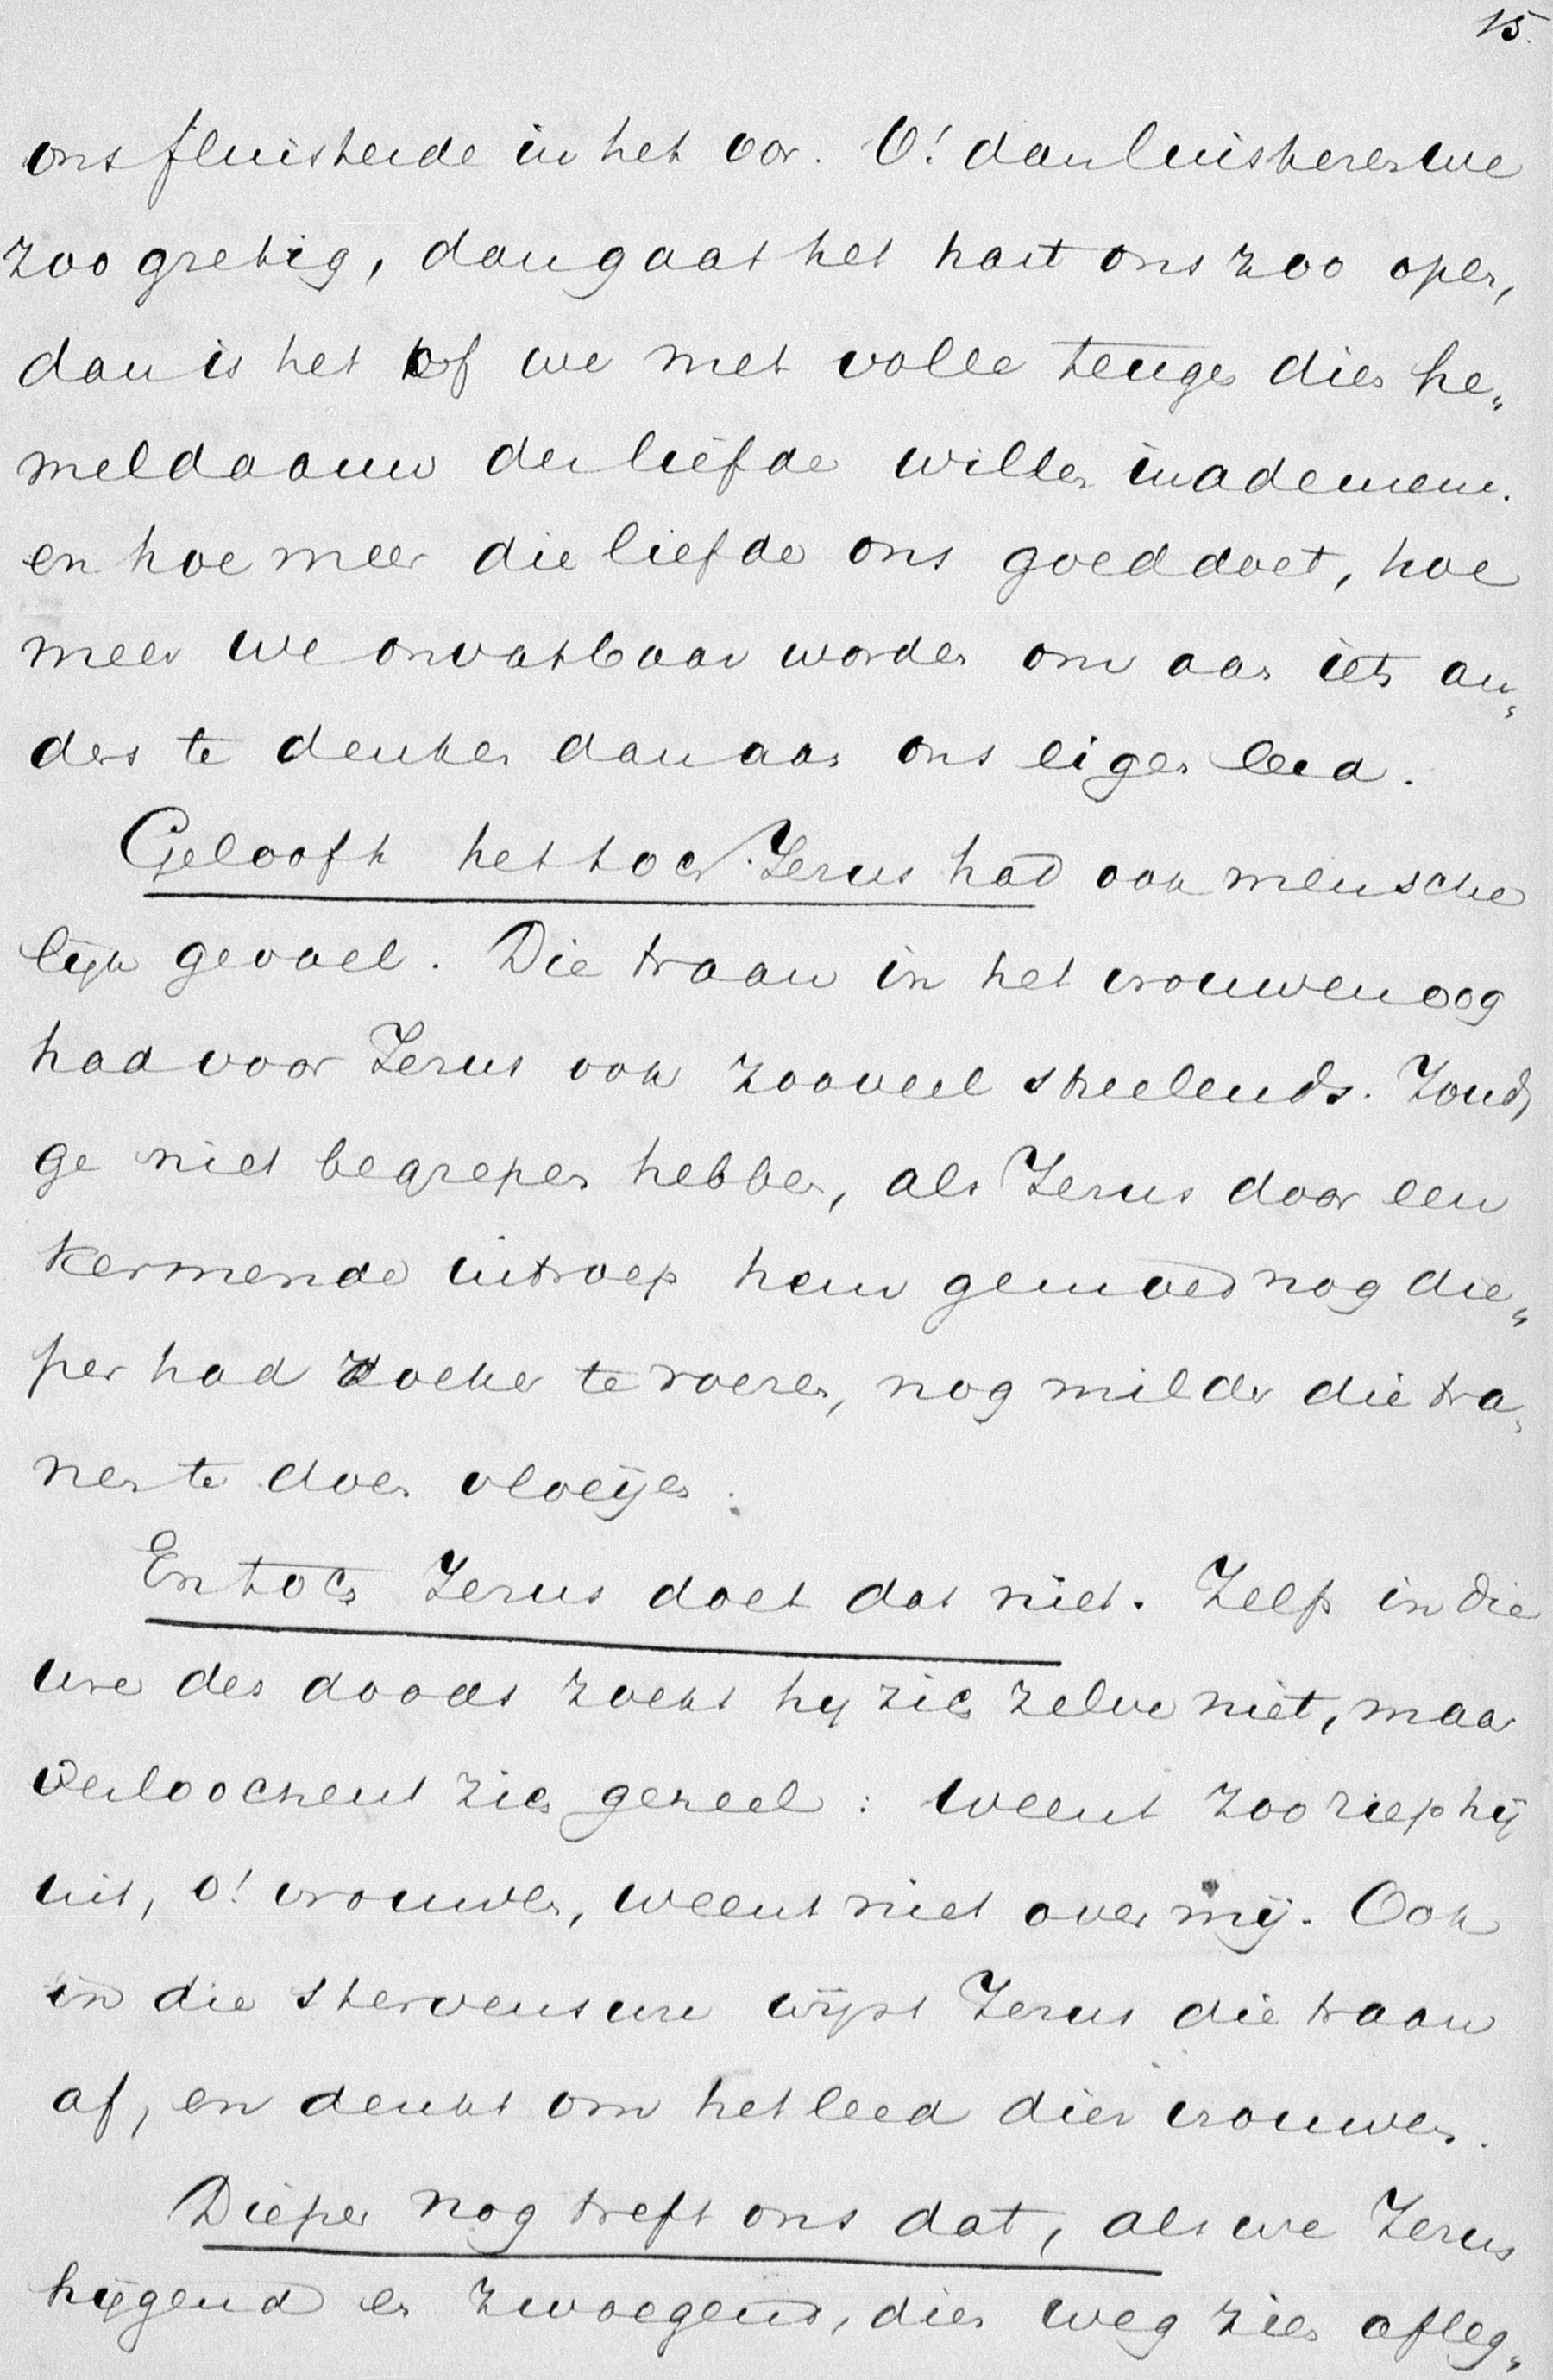 15.
ons fluisterde in het oor. O! dan luisteren we
zoo gretig, dan gaat het hart ons zoo open,
dan is het of we met volle teuge dien he„
meldaauw der liefde willen inademen.
en hoe meer die liefde ons goed doet, hoe
meer we onvatbaar worden om aan iets an„
ders te denken dan aan ons eigen leed.
Gelooft het toch Jezus had ook mensche
lijk gevoel. Die traan in het vrouwenoog
had voor Jezus ook zooveel streelends. Zoudt
ge niet begrepen hebben, als Jezus door een
kermende uitroep hun gemoed nog die„
per had zoeken te roeren, nog milder die tra„
nen te doen vloeijen.
En toch Jezus doet dat niet. Zelfs in die
ure des doods zoekt hij zich zelve niet, maar
verloochent zich geheel: weent zoo riep hij
uit, o! vrouwen, weent niet over mij. Ook
in die stervensure wijst Jezus die traan
af, en denkt om het leed dier vrouwen.
Dieper nog treft ons dat, als we Jezus
hijgend en zwoegend, dien weg zien afleg„